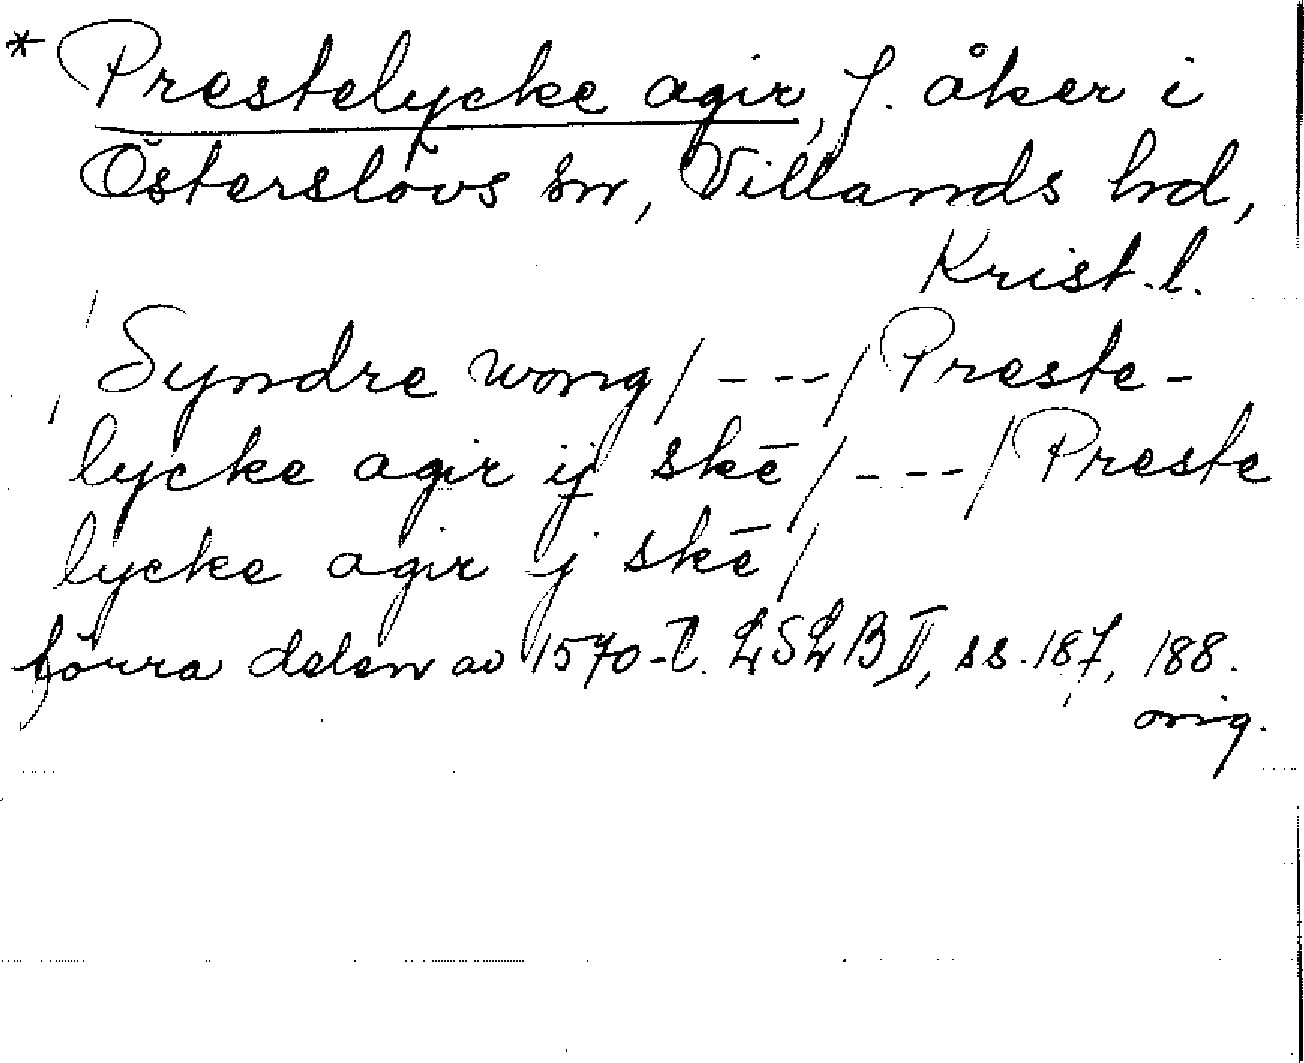 * Prestelycke agir, f. åker i
Österslövs sn, Villands hd,
Krist. l.
Syndre wong/---/Preste-
lycke agir ij skē/---/Preste
lycke agir j skē/
förra delen av 1570-t. LSLB II, ss. 187, 188.
orig.